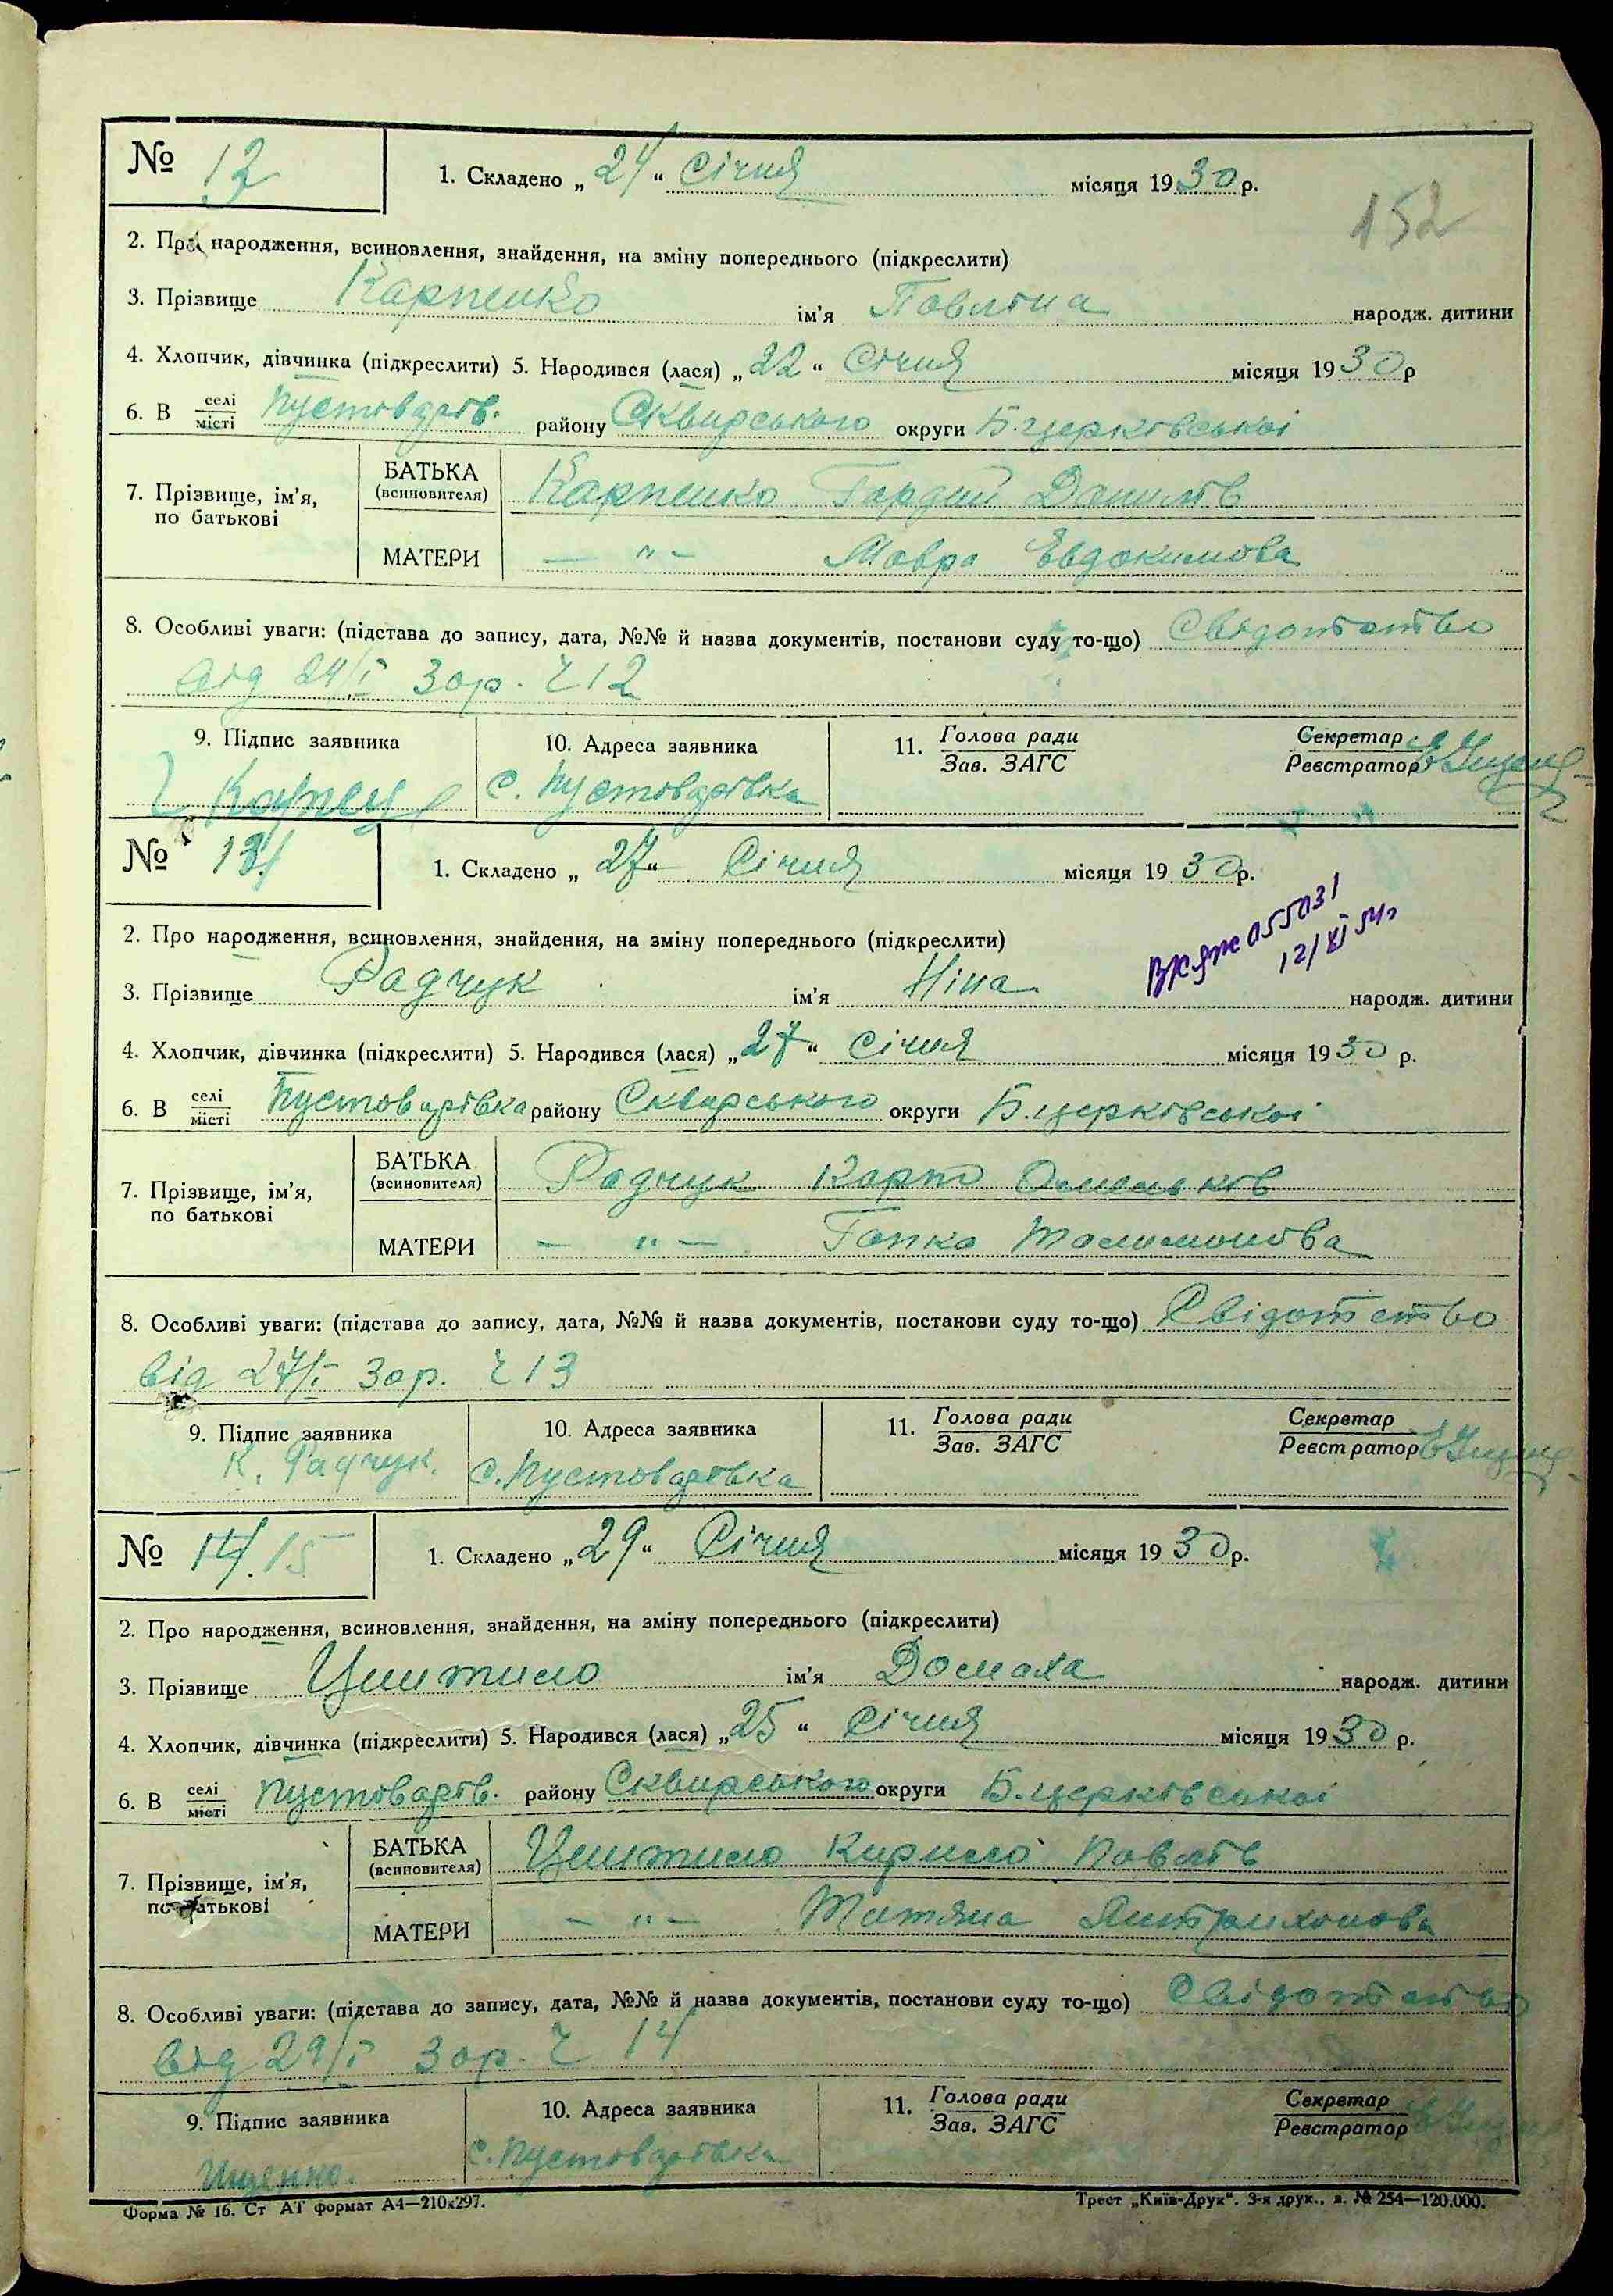 152
№ 12 1. Складено „ 24 “ Січня місяця 1930 р.
2. Про народження, всиновлення, знайдення, на зміну попереднього (підкреслити)
3. Прізвище Карпенко ім'я Павліна народж. дитини
4. Хлопчик, дівчинка (підкреслити) 5. Народився (лася) „ 22 “ Січня місяця 1930 р
6. В селі місті Пустоварів. району Сквирського округи Б.церківської
7. Прізвище, ім'я, по батькові
БАТЬКА (всиновителя) Карпенко Гордий Данилів
МАТЕРИ — „ — Мавра Евдокимова
8. Особливі уваги: (підстава до запису, дата, №№ й назва документів, постанови суду то-що) Свідотство
від 24/I 30р. Ч 12
9. Підпис заявника 10. Адреса заявника 11. Голова ради Зав. ЗАГС Секретар Реєстратор
с. Пустоварівка
№ 13 1. Складено „ 27 “ Січня місяця 1930 р.
2. Про народження, всиновлення, знайдення, на зміну попереднього (підкреслити)
055031
12/XI 54г
3. Прізвище Радчук ім'я Ніна народж. дитини
4. Хлопчик, дівчинка (підкреслити) 5. Народився (лася) „ 27 “ Січня місяця 1930 р.
6. В селі місті Пустоварівка району Сквирського округи Б.церківської
7. Прізвище, ім'я, по батькові
БАТЬКА (всиновителя) Радчук Карпо Омельків
МАТЕРИ — „ — Гапка Талимонова
8. Особливі уваги: (підстава до запису, дата, №№ й назва документів, постанови суду то-що) Свідотство
від 27/I 30р. Ч 13
9. Підпис заявника 10. Адреса заявника 11. Голова ради Зав. ЗАГС Секретар Реєстратор
К. Радчук. с. Пустоварівка
№ 14. 15 1. Складено „ 29 “ Січня місяця 1930 р.
2. Про народження, всиновлення, знайдення, на зміну попереднього (підкреслити)
3. Прізвище ім'я Домаха народж. дитини
4. Хлопчик, дівчинка (підкреслити) 5. Народився (лася) „ 25 “ Січня місяця 1930 р.
6. В селі місті Пустоварів. району Сквирського округи Б.церківської
7. Прізвище, ім'я, по батькові
БАТЬКА (всиновителя) Кирило Павлів
МАТЕРИ — „ — Татяна
8. Особливі уваги: (підстава до запису, дата, №№ й назва документів, постанови суду то-що) Свідотство
від 29/I 30р. Ч 14
9. Підпис заявника 10. Адреса заявника 11. Голова ради Зав. ЗАГС Секретар Реєстратор
Ищенко. с. Пустоварівка
Форма № 16. Ст АТ формат А4—210х297. Трест „Київ-Друк“. 3-я друк., з. № 254—120.000.